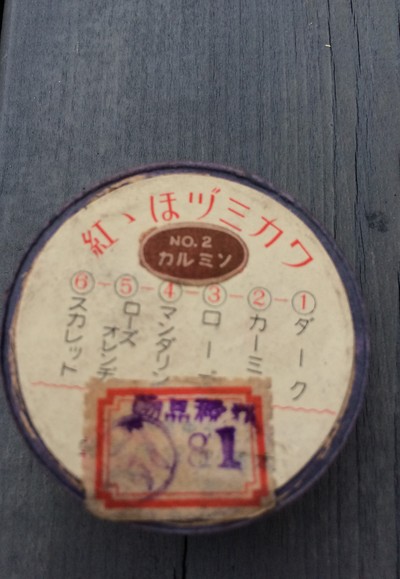 紅ゝほヅミカワ
NO.2
カルミン
①ダーク
②カーミ
③ロー
④マンダリン
⑤ローズ
オレンヂ
⑥スカレット
物品税
81